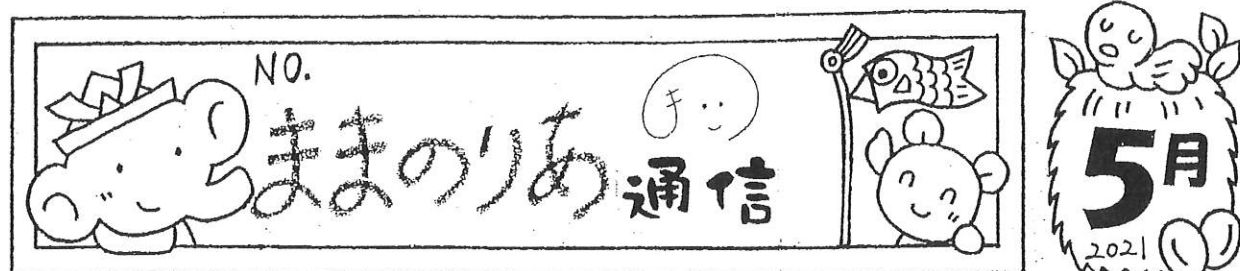 NO.
ままのりあ通信
ま
5月
2021